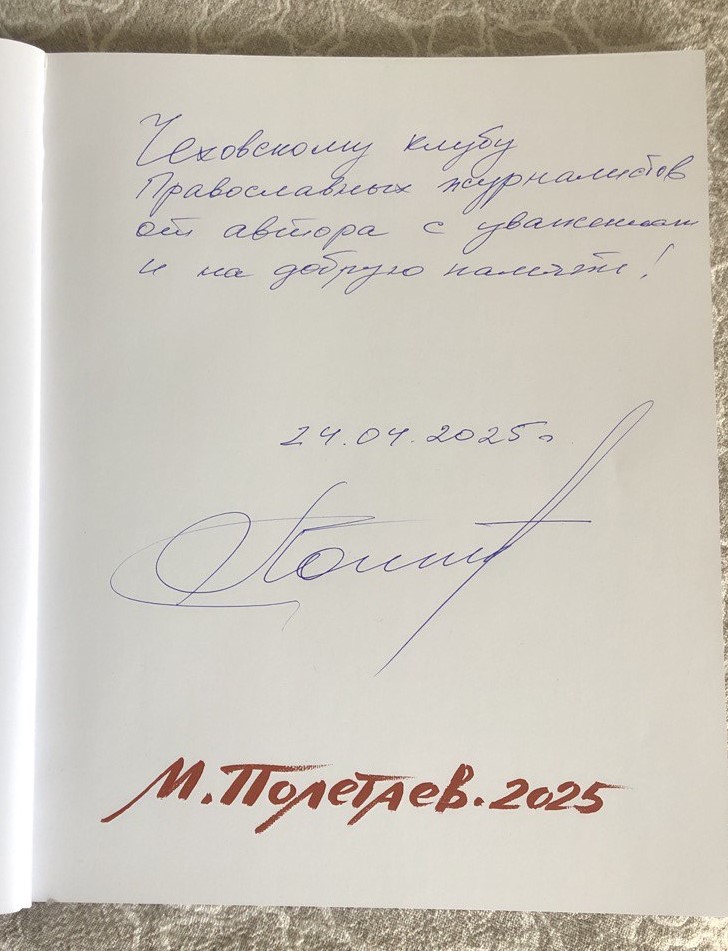 Чеховскому клубу
Православных журналистов
от автора с уважением
и на добрую память!
24.04.2025г
М. Полетаев. 2025